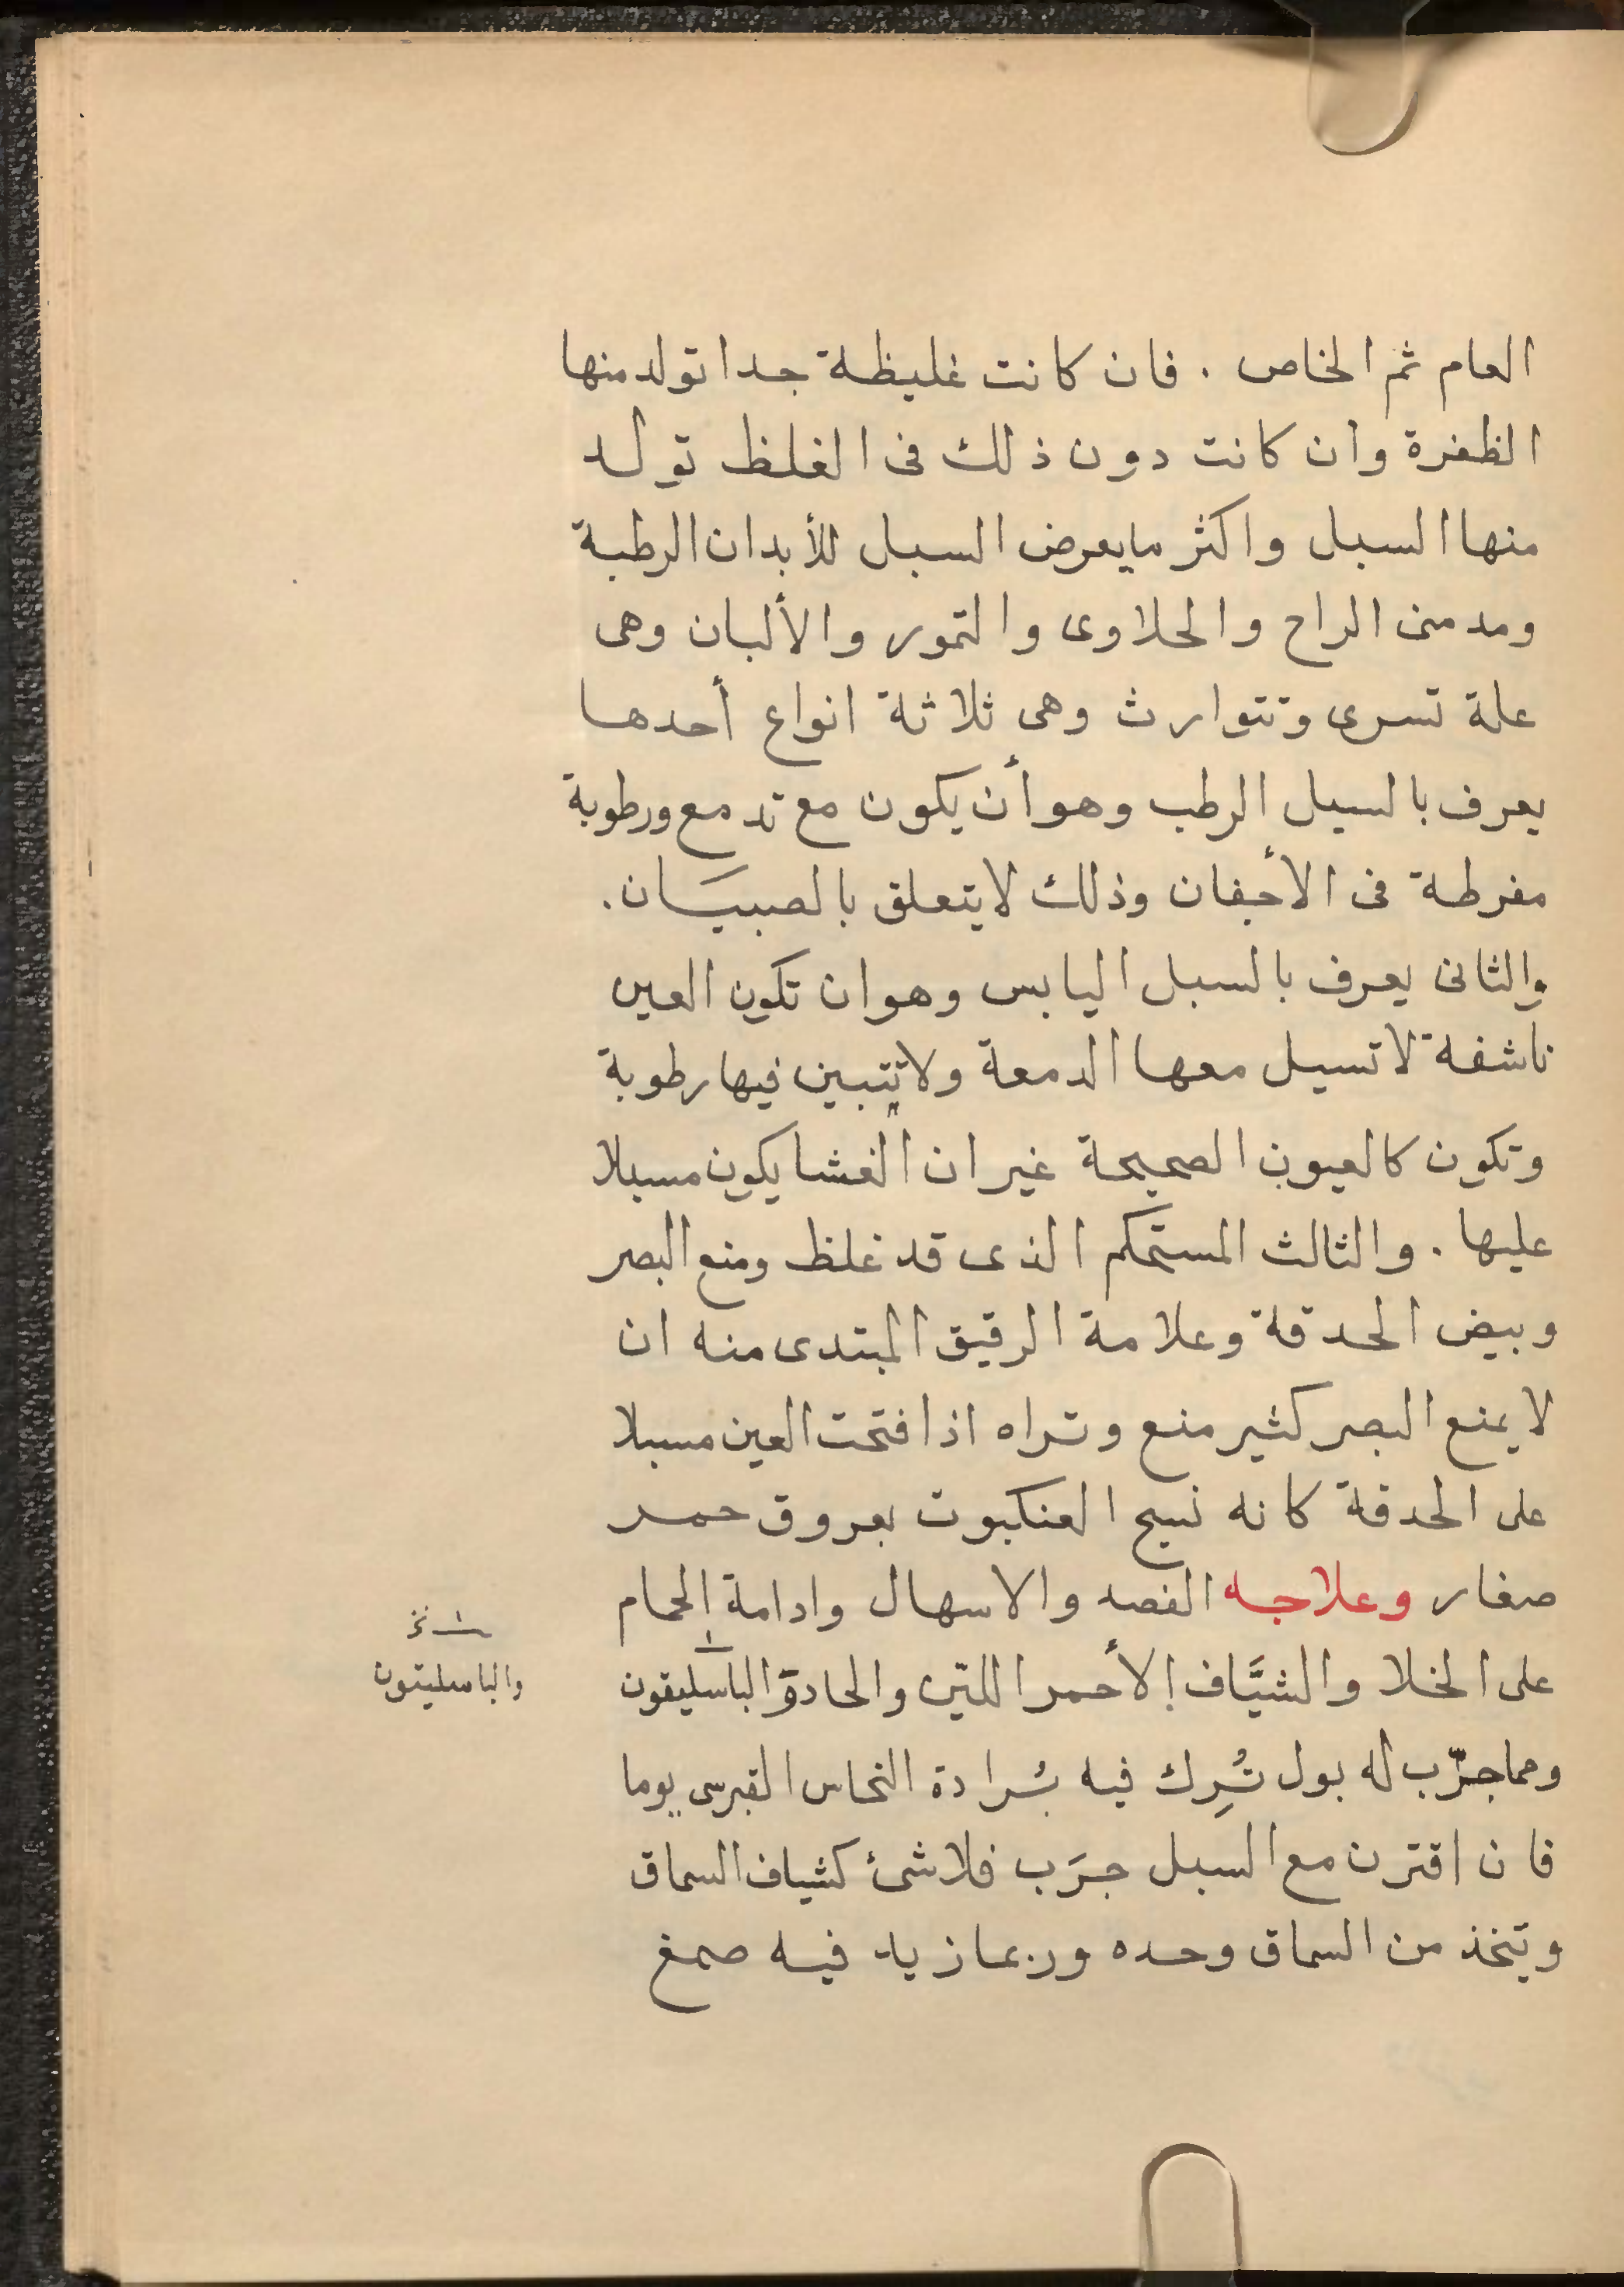 العام ثم الخاص . فان كانت غليظة جدا تولد منها
الظفرة وان كانت دون ذلك فى الغلظ تولد
منها السبل واكثر ما يعرض السبل للأبدان الرطبة
ومدمنى الراح والحلاوى والتمور والألبان وهى
علة تسرى وتتوارث وهى ثلاثة انواع أحدها
يعرف بالسبل الرطب وهو أن يكون مع تدمع ورطوبة
مفرطة فى الأجفان وذلك لا يتعلق بالصبيَان .
والثانى يعرف بالسبل اليابس وهو ان تكون العين
ناشفة لا تسيل معها الدمعة ولا تتبين فيها رطوبة
وتكون كالعيون الصحيحة غير ان الغشا يكون مسبلا
عليها . والثالث المستحكم الذى قد غلظ ومنع البصر
وبيض الحدقة وعلامة الرقيق المبتدى منه ان
لا يمنع البصر كثير منع وتراه اذا فتحت العين مسبلا
على الحدقة كانه نسج العنكبوت بعروق حمر
صغار وعلاجه الفصد والاسهال وادامة الحمام
على الخلا والشيَّاف الأحمر اللين والحادة الباسليقون
والباسليقون
ومما جرّب له بول تُرِك فيه بُرادة النحاس القبرسى يوما
فان اقترن مع السبل جرَب فلا شئ كشياف السماق
ويتخذ من السماق وحده وربما زيد فيه صمغ